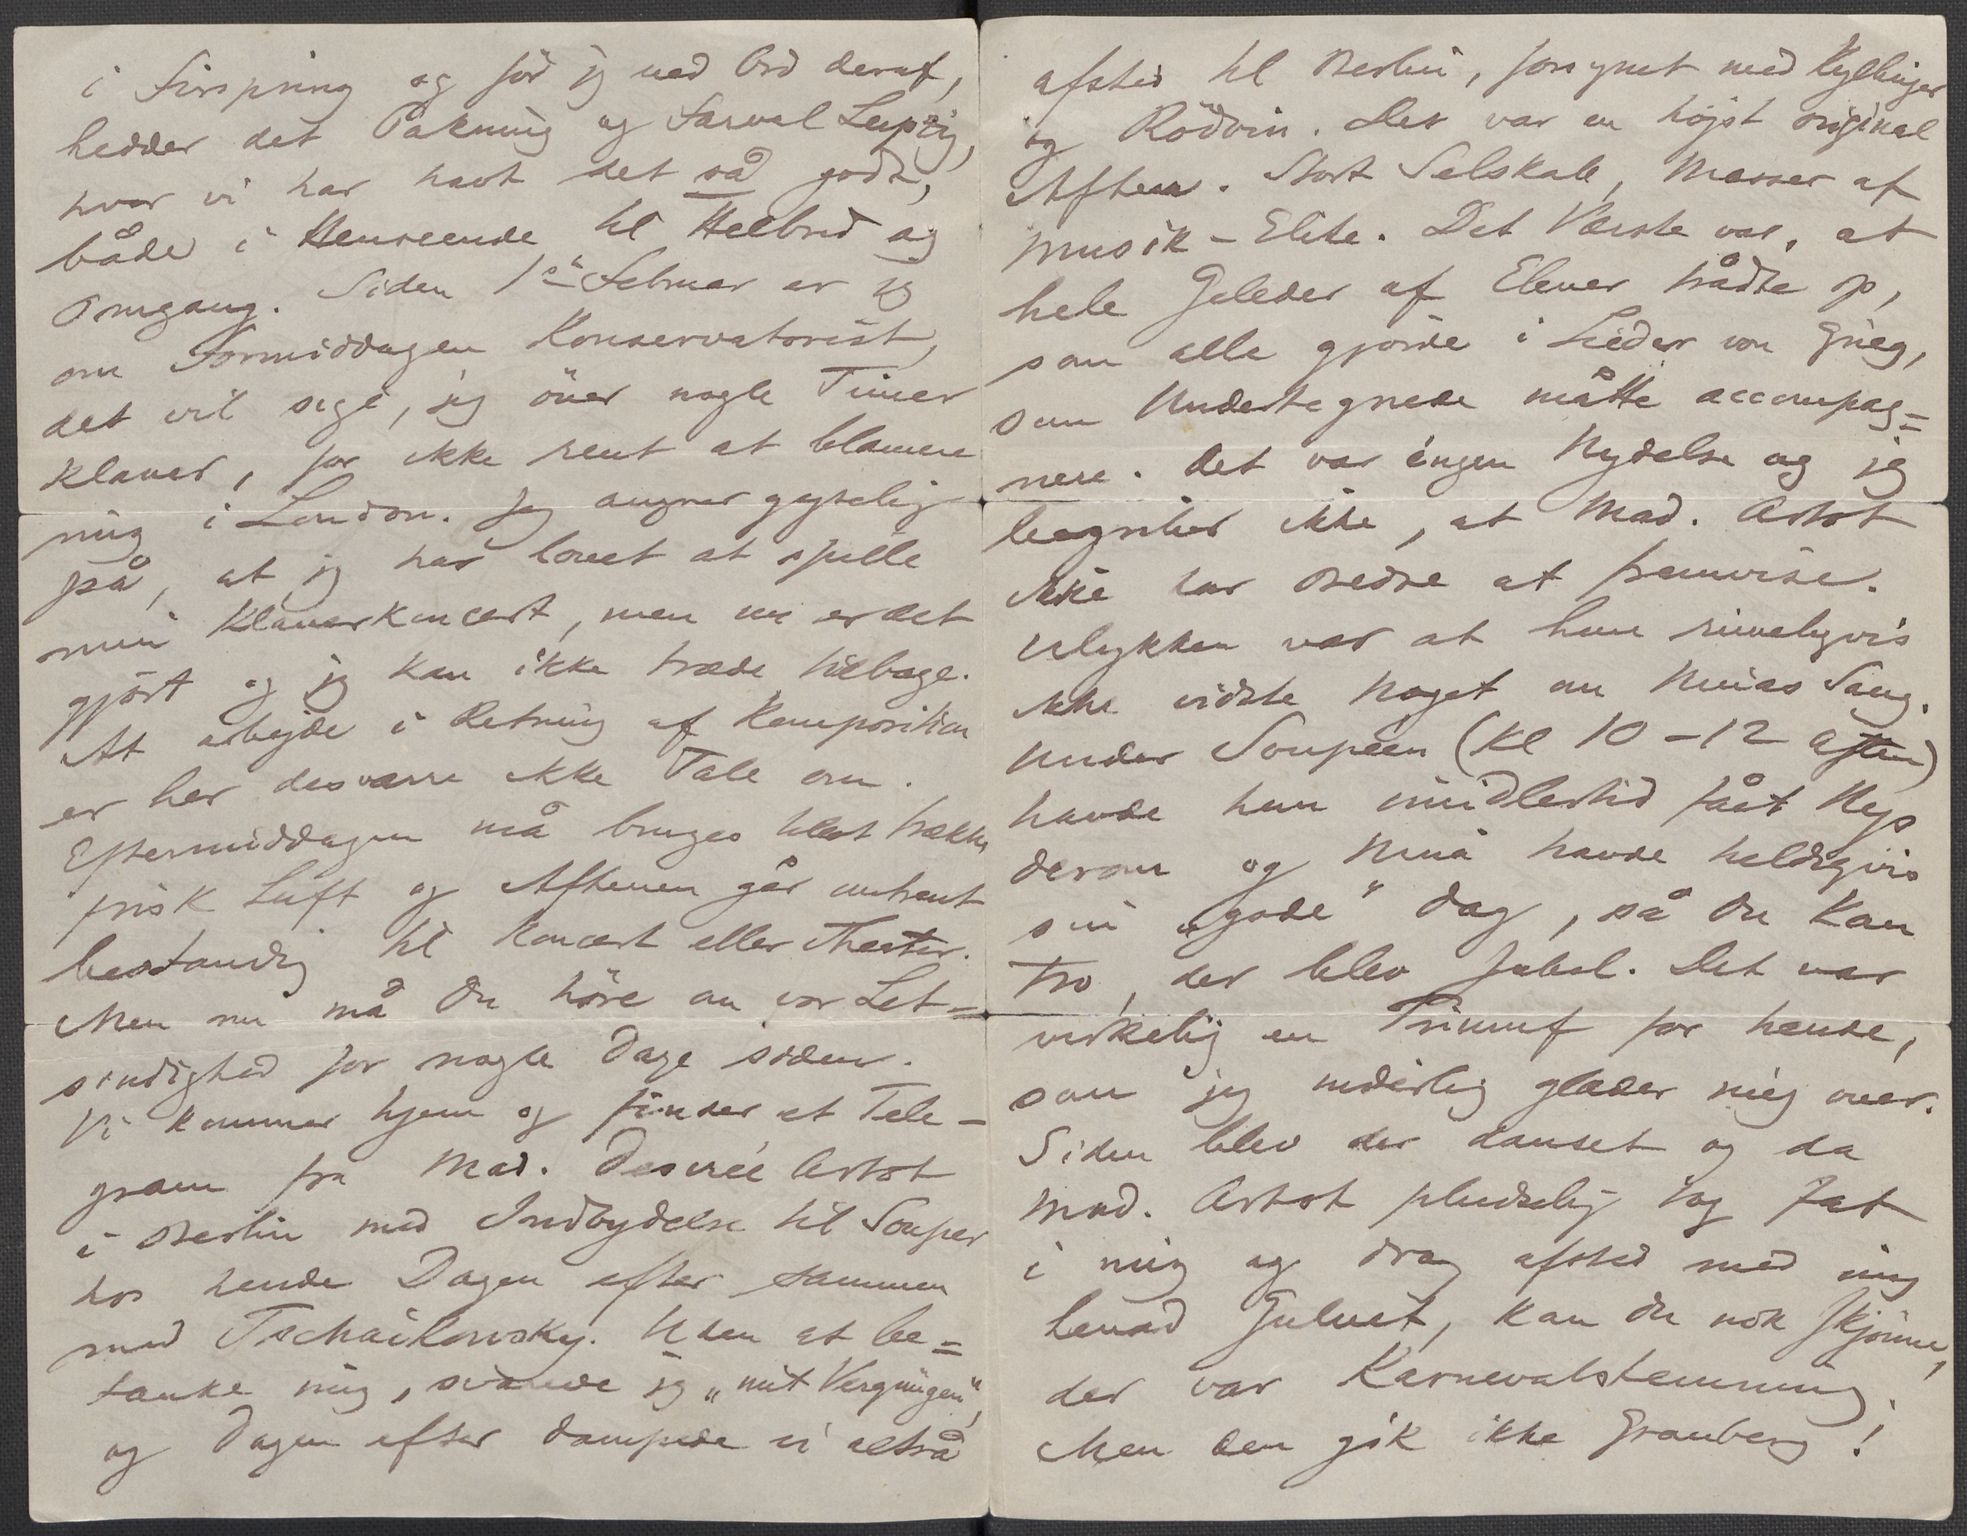 i Firspring og för jeg ved Ord deraf,
hedder det Pakning og Farvel Leipzig,
hvor vi har havt det så godt,
både i Henseende til Helbred og
Omgang. Siden 1ste Februar er jeg
om Formiddagen Konservatorist,
det vil sige, jeg över nogle Timer
Klaver, for ikke rent at blamere
mig i London. Jeg angrer gyselig
på, at jeg har lovet at spille
min Klaverkoncert, men nu er det
gjört og jeg kan ikke træde tilbage.
At arbejde i Retning af Komposition
er her desværre ikke Tale om.
Eftermiddagen må bruges til at trække
frisk Luft og Aftenen går omtrent
bestandig til Koncert eller Theater.
Men nu må Du höre om vor Let=
sindighed for nogle Dage siden.
Vi kommer hjem og finder et Tele-
gram fra Mad. Desirée Artôt
i Berlin med Indbydelse til Souper
hos hende Dagen efter sammen
med Tschaikowsky. Uden at be=
tænke mig, svarede jeg „mit Vergnügen",
og Dagen efter dampede vi altså
afsted til Berlin, forsynet med Kyllinger
og Rödvin. Det var en höjst original
Aften. Stort Selskab, Masser af
Musik-Elite. Det Værste var, at
hele Geleder af Elever trådte op,
som alle gjorde i Lieder von Grieg,
som Undertegnede måtte accompag=
nere. Det var ingen Nydelse og jeg
begriber ikke, at Mad. Artôt
ikke har Bedre at fremvise.
Ulykken var at hun rimeligvis
ikke vidste Noget om Ninas Sang.
Under Soupéen (Kl 10-12 Aften)
havde hun imidlertid fået Nys
derom og Nina havde heldigvis
sin „gode" Dag, så Du kan
tro, der blev Jubel. Det var
virkelig en Triumf for hende,
som jeg inderlig glæder mig over.
Siden blev der danset og da
Mad. Artôt pludselig tog Fat
i mig og drog afsted med mig
henad Gulvet, kan Du nok skjönne,
der var Karnevalstemning.
Men den gik ikke Granberg!